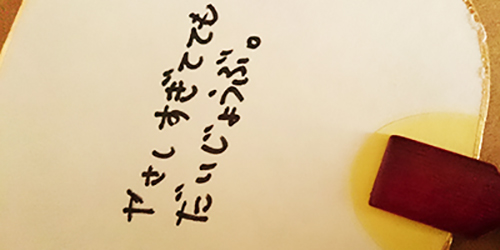 やさしすぎてても
だいじょうぶ。